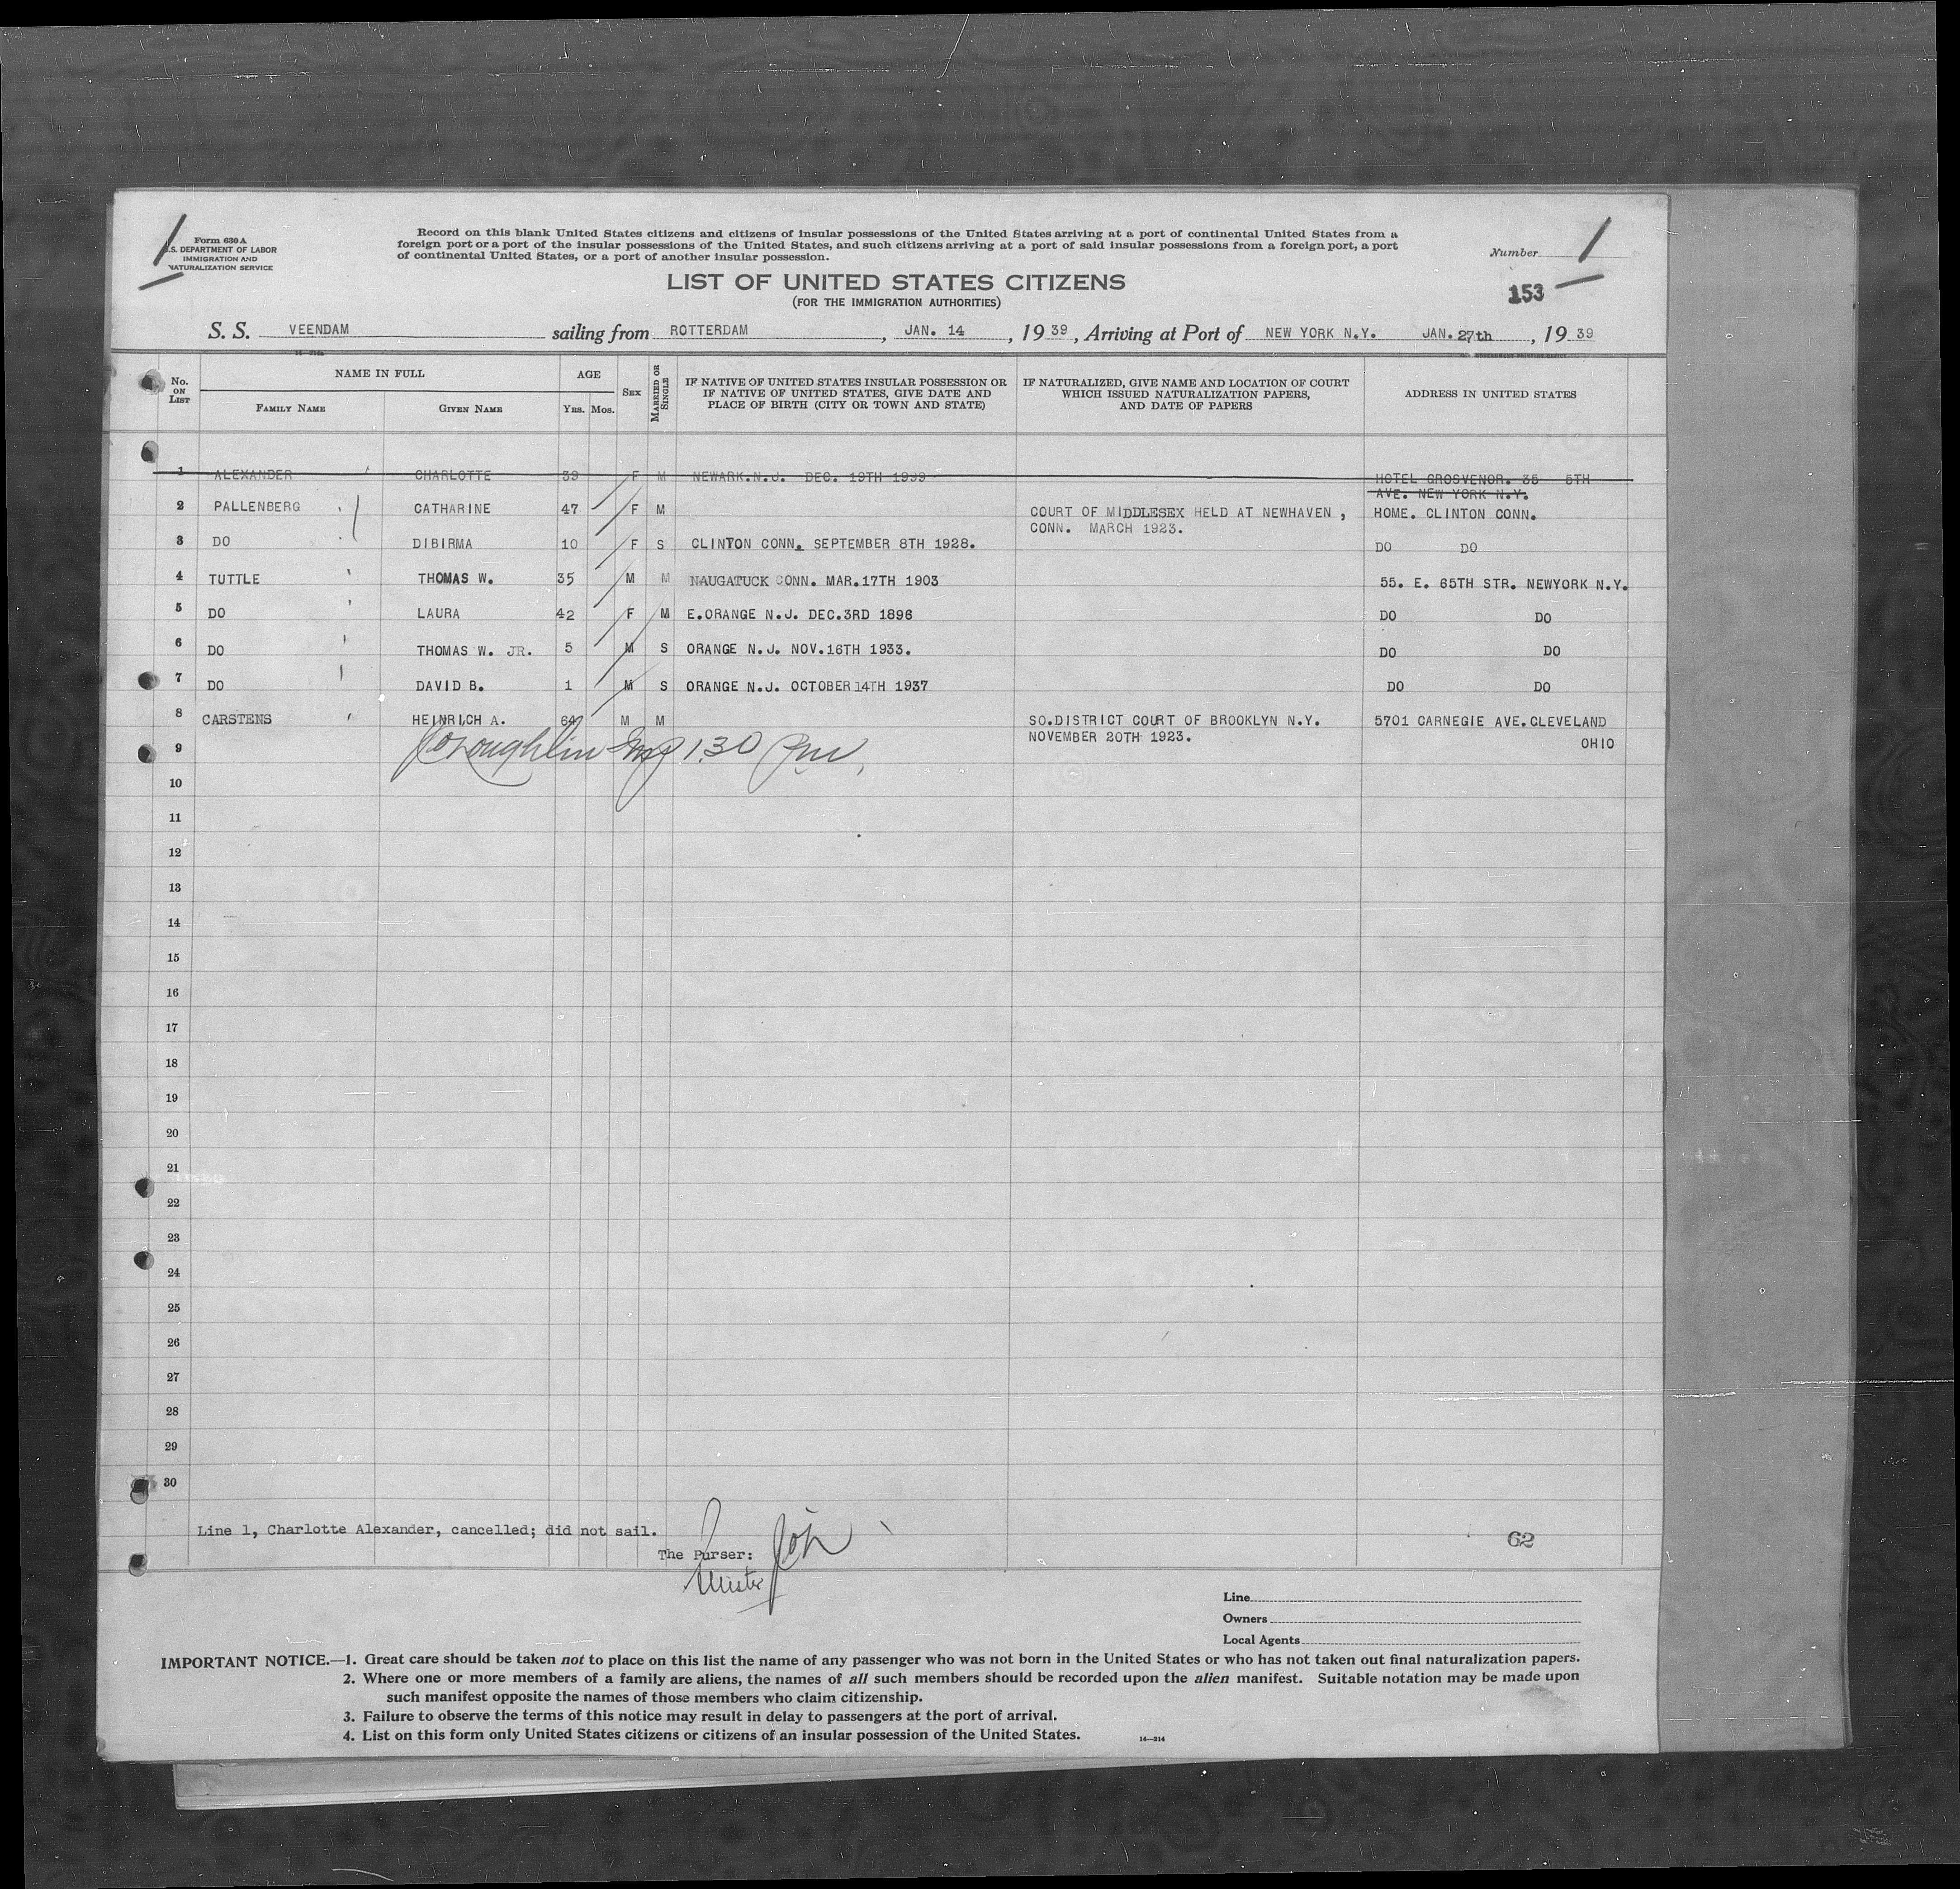 Form 630 A
U.S. DEPARTMENT OF LABOR
IMMIGRATION AND
NATURALIZATION SERVICE
Record on this blank United States citizens and citizens of insular possessions of the United States arriving at a port of continental United States from a
foreign port or a port of the insular possessions of the United States, and such citizens arriving at a port of said insular possessions from a foreign port, a port
of continental United States, or a port of another insular possession.
Number 1
LIST OF UNITED STATES CITIZENS
(FOR THE IMMIGRATION AUTHORITIES)
153
S. S. VEENDAM sailing from ROTTERDAM, JAN. 14, 1939, Arriving at Port of NEW YORK N.Y. JAN. 27th, 1939
No. ON LIST NAME IN FULL FAMILY NAME GIVEN NAME AGE YRS. MOS. SEX MARRIED OR SINGLE IF NATIVE OF UNITED STATES INSULAR POSSESSION OR IF NATIVE OF UNITED STATES, GIVE DATE AND PLACE OF BIRTH (CITY OR TOWN AND STATE) IF NATURALIZED, GIVE NAME AND LOCATION OF COURT WHICH ISSUED NATURALIZATION PAPERS, AND DATE OF PAPERS ADDRESS IN UNITED STATES
1 ALEXANDER CHARLOTTE 39 F M NEWARK.N.J. DEC. 19TH 1939 HOTEL GROSVENOR. 35 5TH
AVE. NEW YORK N.Y.
2 PALLENBERG CATHARINE 47 F M COURT OF MIDDLESEX HELD AT NEWHAVEN , HOME. CLINTON CONN.
CONN. MARCH 1923.
3 DO DIBIRMA 10 F S CLINTON CONN. SEPTEMBER 8TH 1928. DO DO
4 TUTTLE THOMAS W. 35 M M NAUGATUCK CONN. MAR.17TH 1903 55. E. 65TH STR. NEWYORK N.Y.
5 DO LAURA 42 F M E.ORANGE N.J. DEC.3RD 1896 DO DO
6 DO THOMAS W. JR. 5 M S ORANGE N.J. NOV.16TH 1933. DO DO
7 DO DAVID B. 1 M S ORANGE N.J. OCTOBER 14TH 1937 DO DO
8 CARSTENS HEINRICH A. 64 M M SO.DISTRICT COURT OF BROOKLYN N.Y. 5701 CARNEGIE AVE.CLEVELAND
NOVEMBER 20TH 1923. OHIO
9 130 Pm
10
11
12
13
14
15
16
17
18
19
20
21
22
23
24
25
26
27
28
29
30
Line 1, Charlotte Alexander, cancelled; did not sail.
The Purser:
62
Line
Owners
Local Agents
IMPORTANT NOTICE.—1. Great care should be taken not to place on this list the name of any passenger who was not born in the United States or who has not taken out final naturalization papers.
2. Where one or more members of a family are aliens, the names of all such members should be recorded upon the alien manifest. Suitable notation may be made upon
such manifest opposite the names of those members who claim citizenship.
3. Failure to observe the terms of this notice may result in delay to passengers at the port of arrival.
4. List on this form only United States citizens or citizens of an insular possession of the United States.
14—214